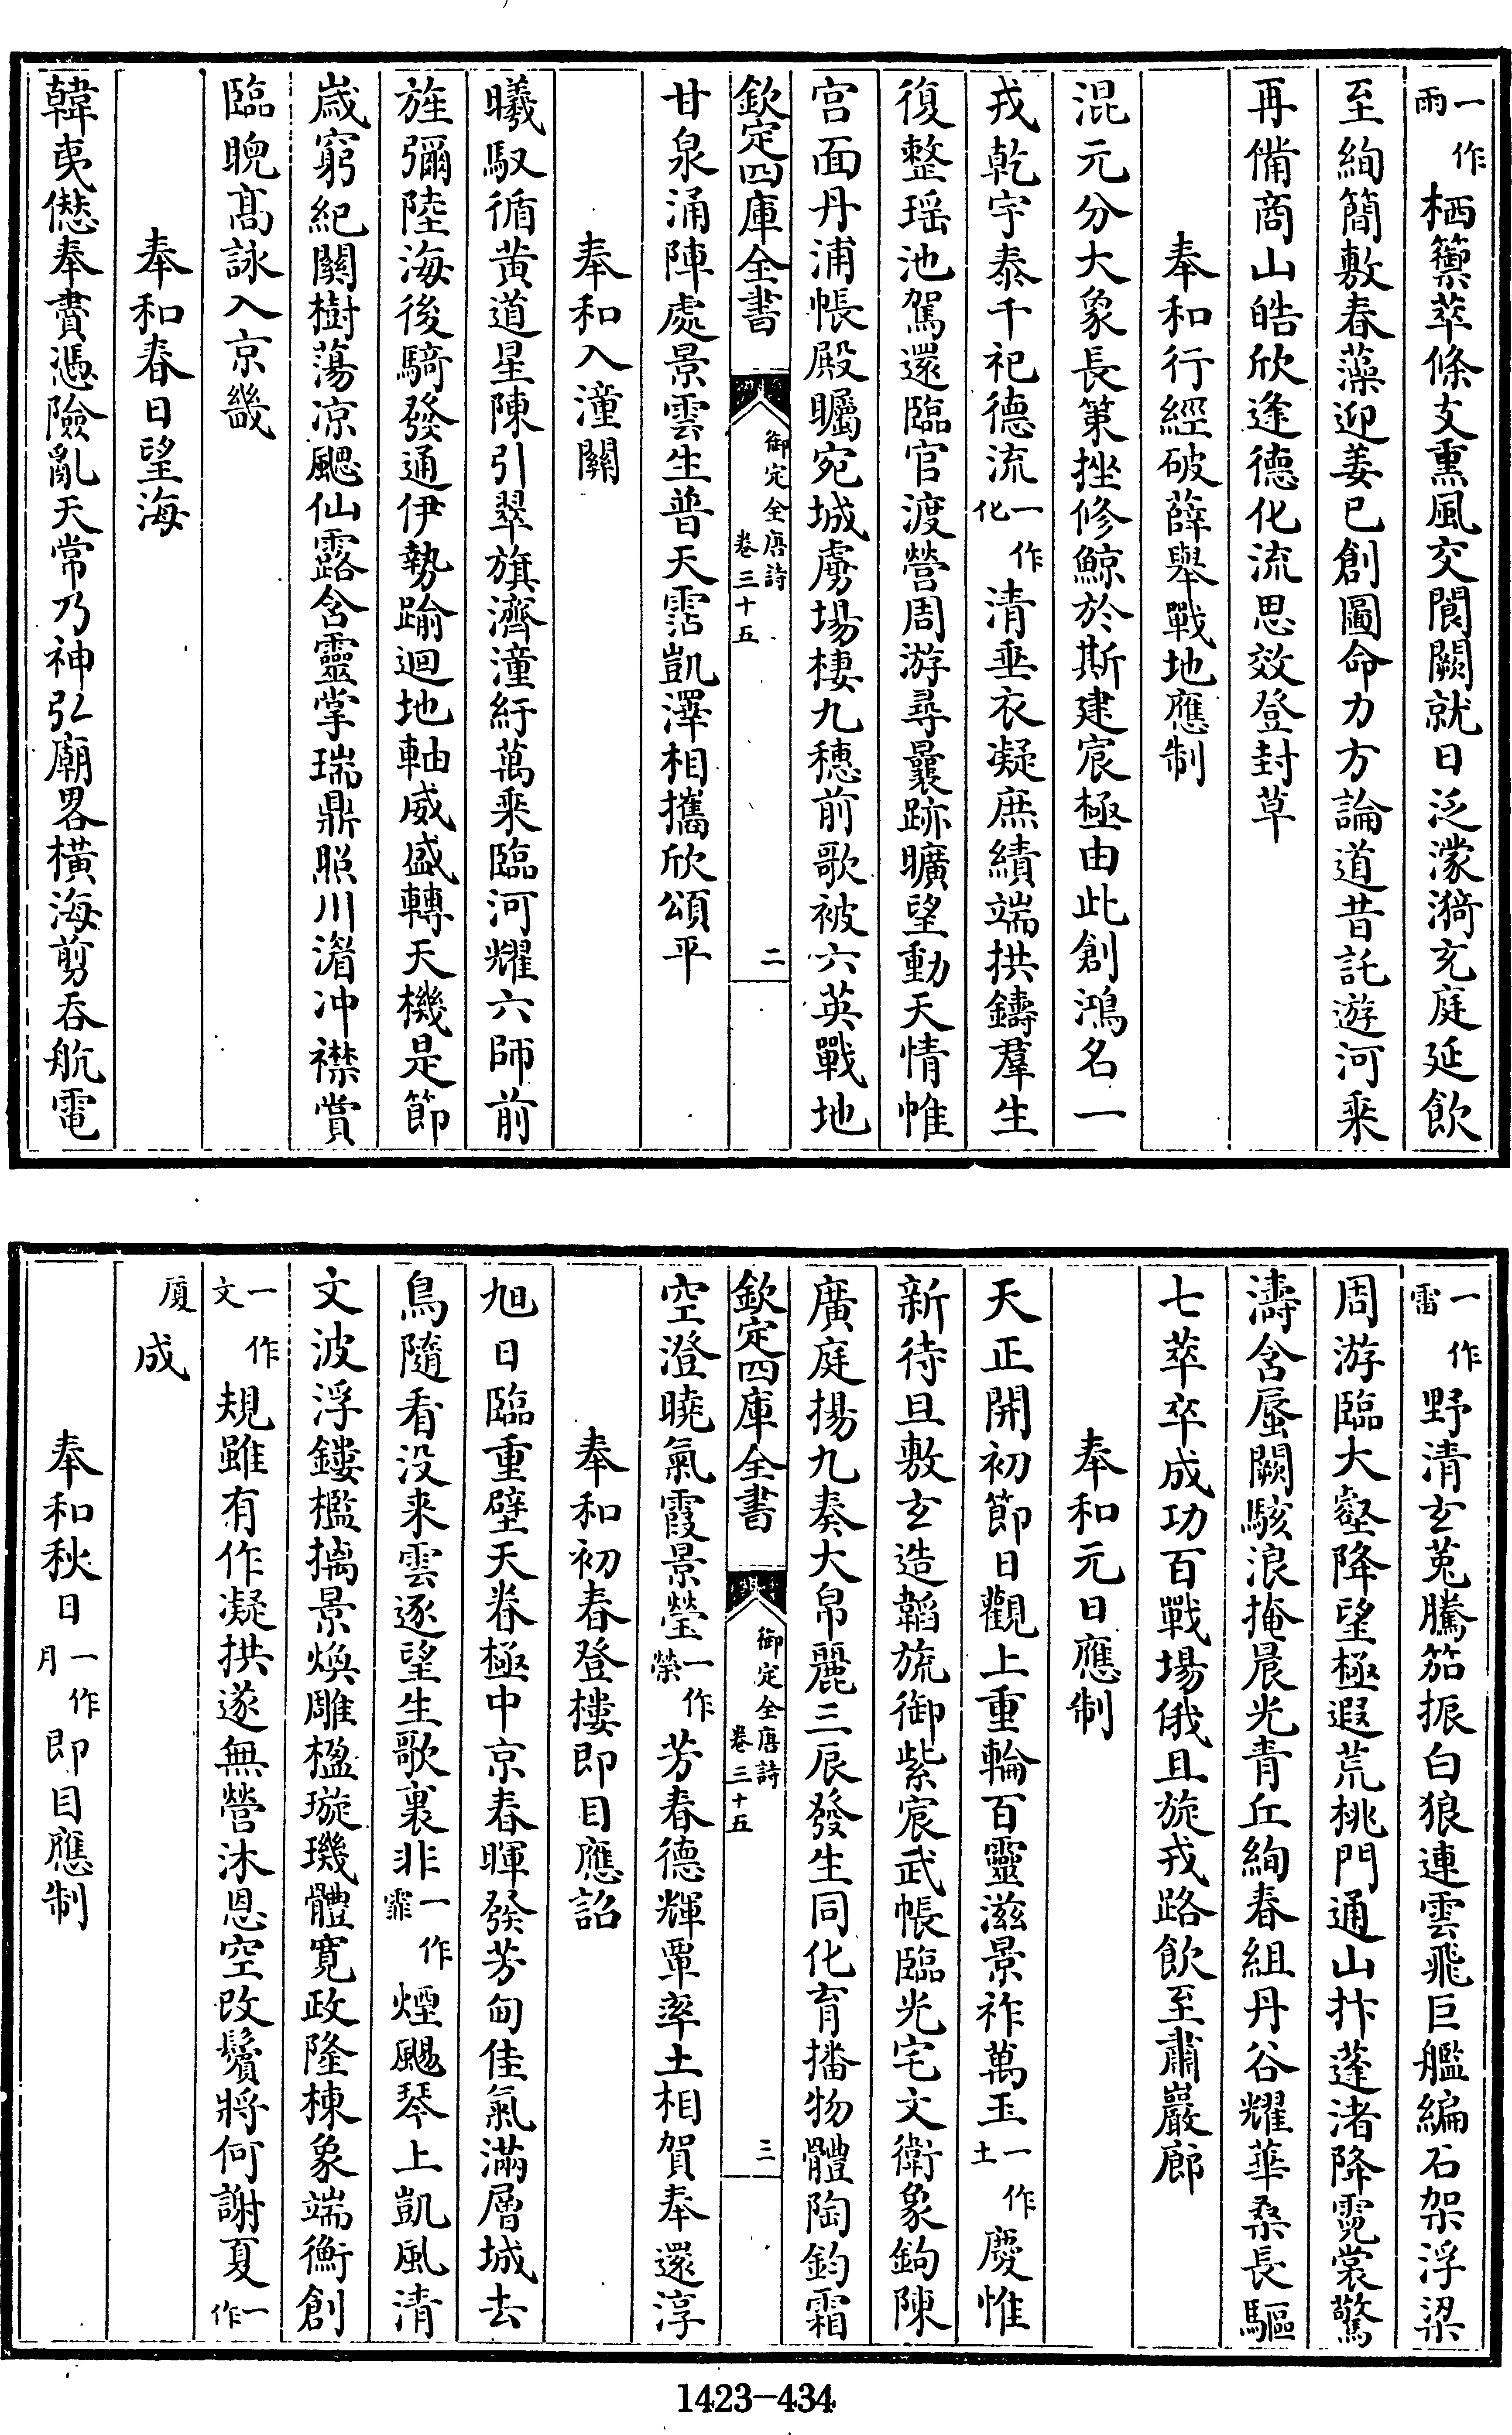 一作雨栖籞萃條支熏風交閬闕就日泛濛漪充庭延飲
至絢簡敷春藻迎姜已創圖命力方論道昔託遊河乘
再備商山皓欣逢德化流思效登封草
奉和行經破薛舉戰地應制
混元分大象長策挫修鯨於斯建宸極由此創鴻名一
戎乾宇泰千祀德流一作化清垂衣凝庶績端拱鑄羣生
復整瑶池駕還臨官渡營周游尋曩跡曠望動天情帷
宫面丹浦帳殿矚宛城虜場棲九穗前歌被六英戰地
欽定四庫全書
御定全唐詩
卷三十五
二
甘泉涌陣處景雲生普天霑凱澤相攜欣頌平
奉和入潼關
曦馭循黄道星陳引翠旗濟潼紆萬乘臨河耀六師前
旌彌陸海後騎發通伊勢踰迴地軸威盛轉天機是節
歲窮紀關樹蕩凉颸仙露含靈掌瑞鼎照川湄冲襟賞
臨睕髙詠入京畿
奉和春日望海
韓夷愆奉賮憑險亂天常乃神弘廟畧横海剪吞航電
一作雷野清玄菟騰笳振白狼連雲飛巨艦編石架浮梁
周游臨大壑降望極遐荒桃門通山抃蓬渚降霓裳驚
濤含蜃闕駭浪掩晨光青丘絢春組丹谷耀華桑長驅
七萃卒成功百戰場俄且旋戎路飲至肅巖廊
奉和元日應制
天正開初節日觀上重輪百靈滋景祚萬玉一作土慶惟
新待旦敷玄造韜旒御紫宸武帳臨光宅文衛象鉤陳
廣庭揚九奏大帛麗三辰發生同化育播物體陶鈞霜
欽定四庫全書
御定全唐詩
卷三十五
三
空澄曉氣霞景瑩一作榮芳春德輝覃率土相賀奉還淳
奉和初春登樓即目應詔
旭日臨重壁天眷極中京春暉發芳甸佳氣滿層城去
鳥隨看没来雲逐望生歌裏非一作霏煙颺琴上凱風清
文波浮鏤檻摛景煥雕楹璇璣體寛政隆棟象端衡創
一作文規雖有作凝拱遂無營沐恩空改鬢將何謝夏一作
厦成
奉和秋日一作月即目應制
1423-434